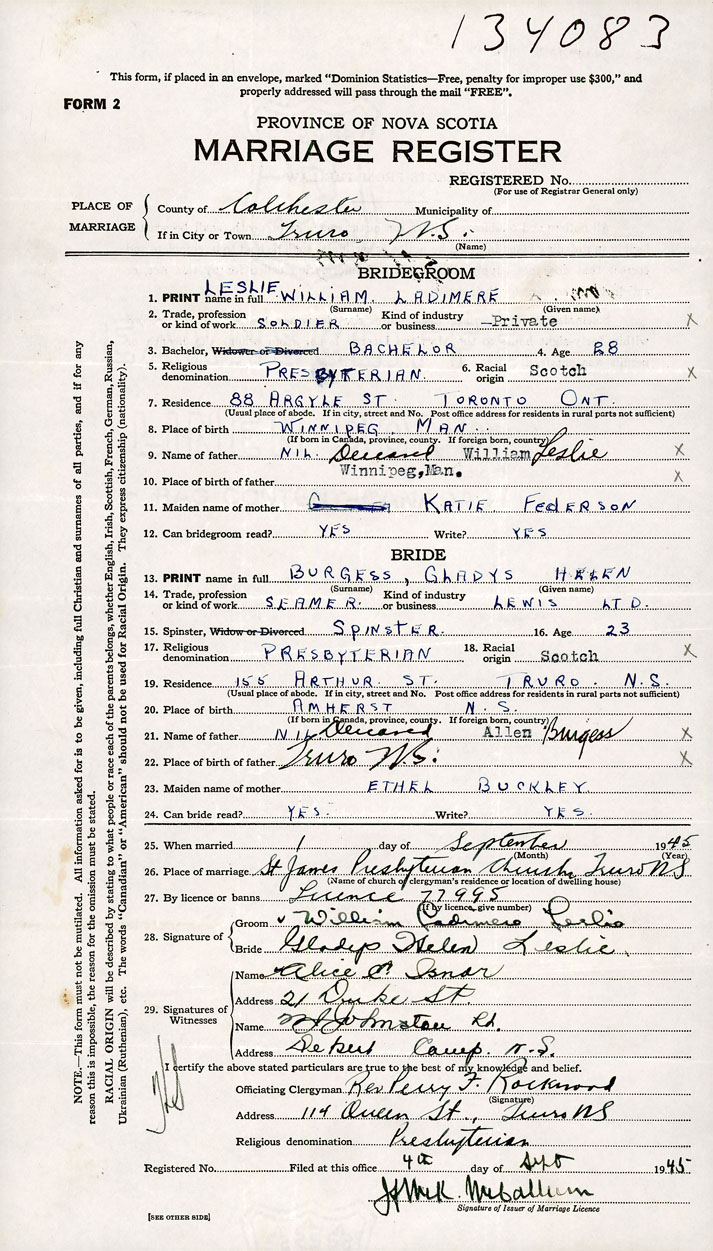 134083
This form, if placed in an envelope, marked "Dominion Statistics—Free, penalty for improper use $300," and
properly addressed will pass through the mail "FREE".
FORM 2
PROVINCE OF NOVA SCOTIA
MARRIAGE REGISTER
REGISTERED No.
(For use of Registrar General only)
PLACE OF MARRIAGE
County of Colchester Municipality of
If in City or Town Truro N.S.
(Name)
BRIDEGROOM
LESLIE
1. PRINT name in full WILLIAM LADIMERE
(Surname) (Given name)
2. Trade, profession or kind of work SOLDIER Kind of industry or business —Private X
3. Bachelor, Widower or Divorced BACHELOR 4. Age 28
5. Religious denomination PRESBYTERIAN. 6. Racial origin Scotch X
7. Residence 88 ARGYLE ST. TORONTO ONT.
(Usual place of abode. If in city, street and No. Post office address for residents in rural parts not sufficient)
8. Place of birth WINNIPEG. MAN.
(If born in Canada, province, county. If foreign born, county)
9. Name of father NIL. Deceased William Leslie X
Winnipeg,Man.
10. Place of birth of father X
11. Maiden name of mother KATIE FEDERSON
12. Can bridegroom read? YES Write? YES
BRIDE
13. PRINT name in full BURGESS, GLADYS HELEN
(Surname) (Given name)
14. Trade, profession or kind of work SEAMER. Kind of industry or business LEWIS LTD.
15. Spinster, Widow or Divorced SPINSTER. 16. Age 23
17. Religious denomination PRESBYTERIAN 18. Racial origin Scotch X
19. Residence 155 ARTHUR ST. TRURO. N.S.
(Usual place of abode. If in city, street and No. Post office address for residents in rural parts not sufficient)
20. Place of birth AMHERST N.S.
(If born in Canada, province, county. If foreign born, county)
21. Name of father NIL Deceased Allen Burgess X
22. Place of birth of father Truro N.S. X
23. Maiden name of mother ETHEL BUCKLEY.
24. Can bride read? YES. Write? YES.
25. When married 1 day of September 1945
(Month) (Year)
26. Place of marriage St James Presbyterian Church, Truro NS
(Name of church or clergyman's residence or location of dwelling house)
27. By licence or banns Licence 77995
(If by licence, give number)
28. Signature of
Groom William Ladimere Leslie
Bride Gladys Helen Leslie.
29. Signatures of Witnesses
Name Alice
Address 21 Duke St
Name Johnston
Address Debert Camp. N.S.
I certify the above stated particulars are true to the best of my knowledge and belief.
Officiating Clergyman Rev Perry F. Rockwood
(Signature)
Address 114 Queen St., Truro NS
Religious denomination Presbyterian
Registered No. Filed at this office 4th day of Sept 1945
McCallum
Signature of Issuer of Marriage Licence
[SEE OTHER SIDE]
NOTE.—This form must not be mutilated. All information asked for is to be given, including full Christian and surnames of all parties, and if for any
reason this is impossible, the reason for the omission must be stated.
RACIAL ORIGIN will be described by stating to what people or race each of the parents belongs, whether English, Irish, Scottish, French, German, Russian,
Ukrainian (Ruthenian), etc. The words "Canadian" or "American" should not be used for Racial Origin. They express citizenship (nationality).